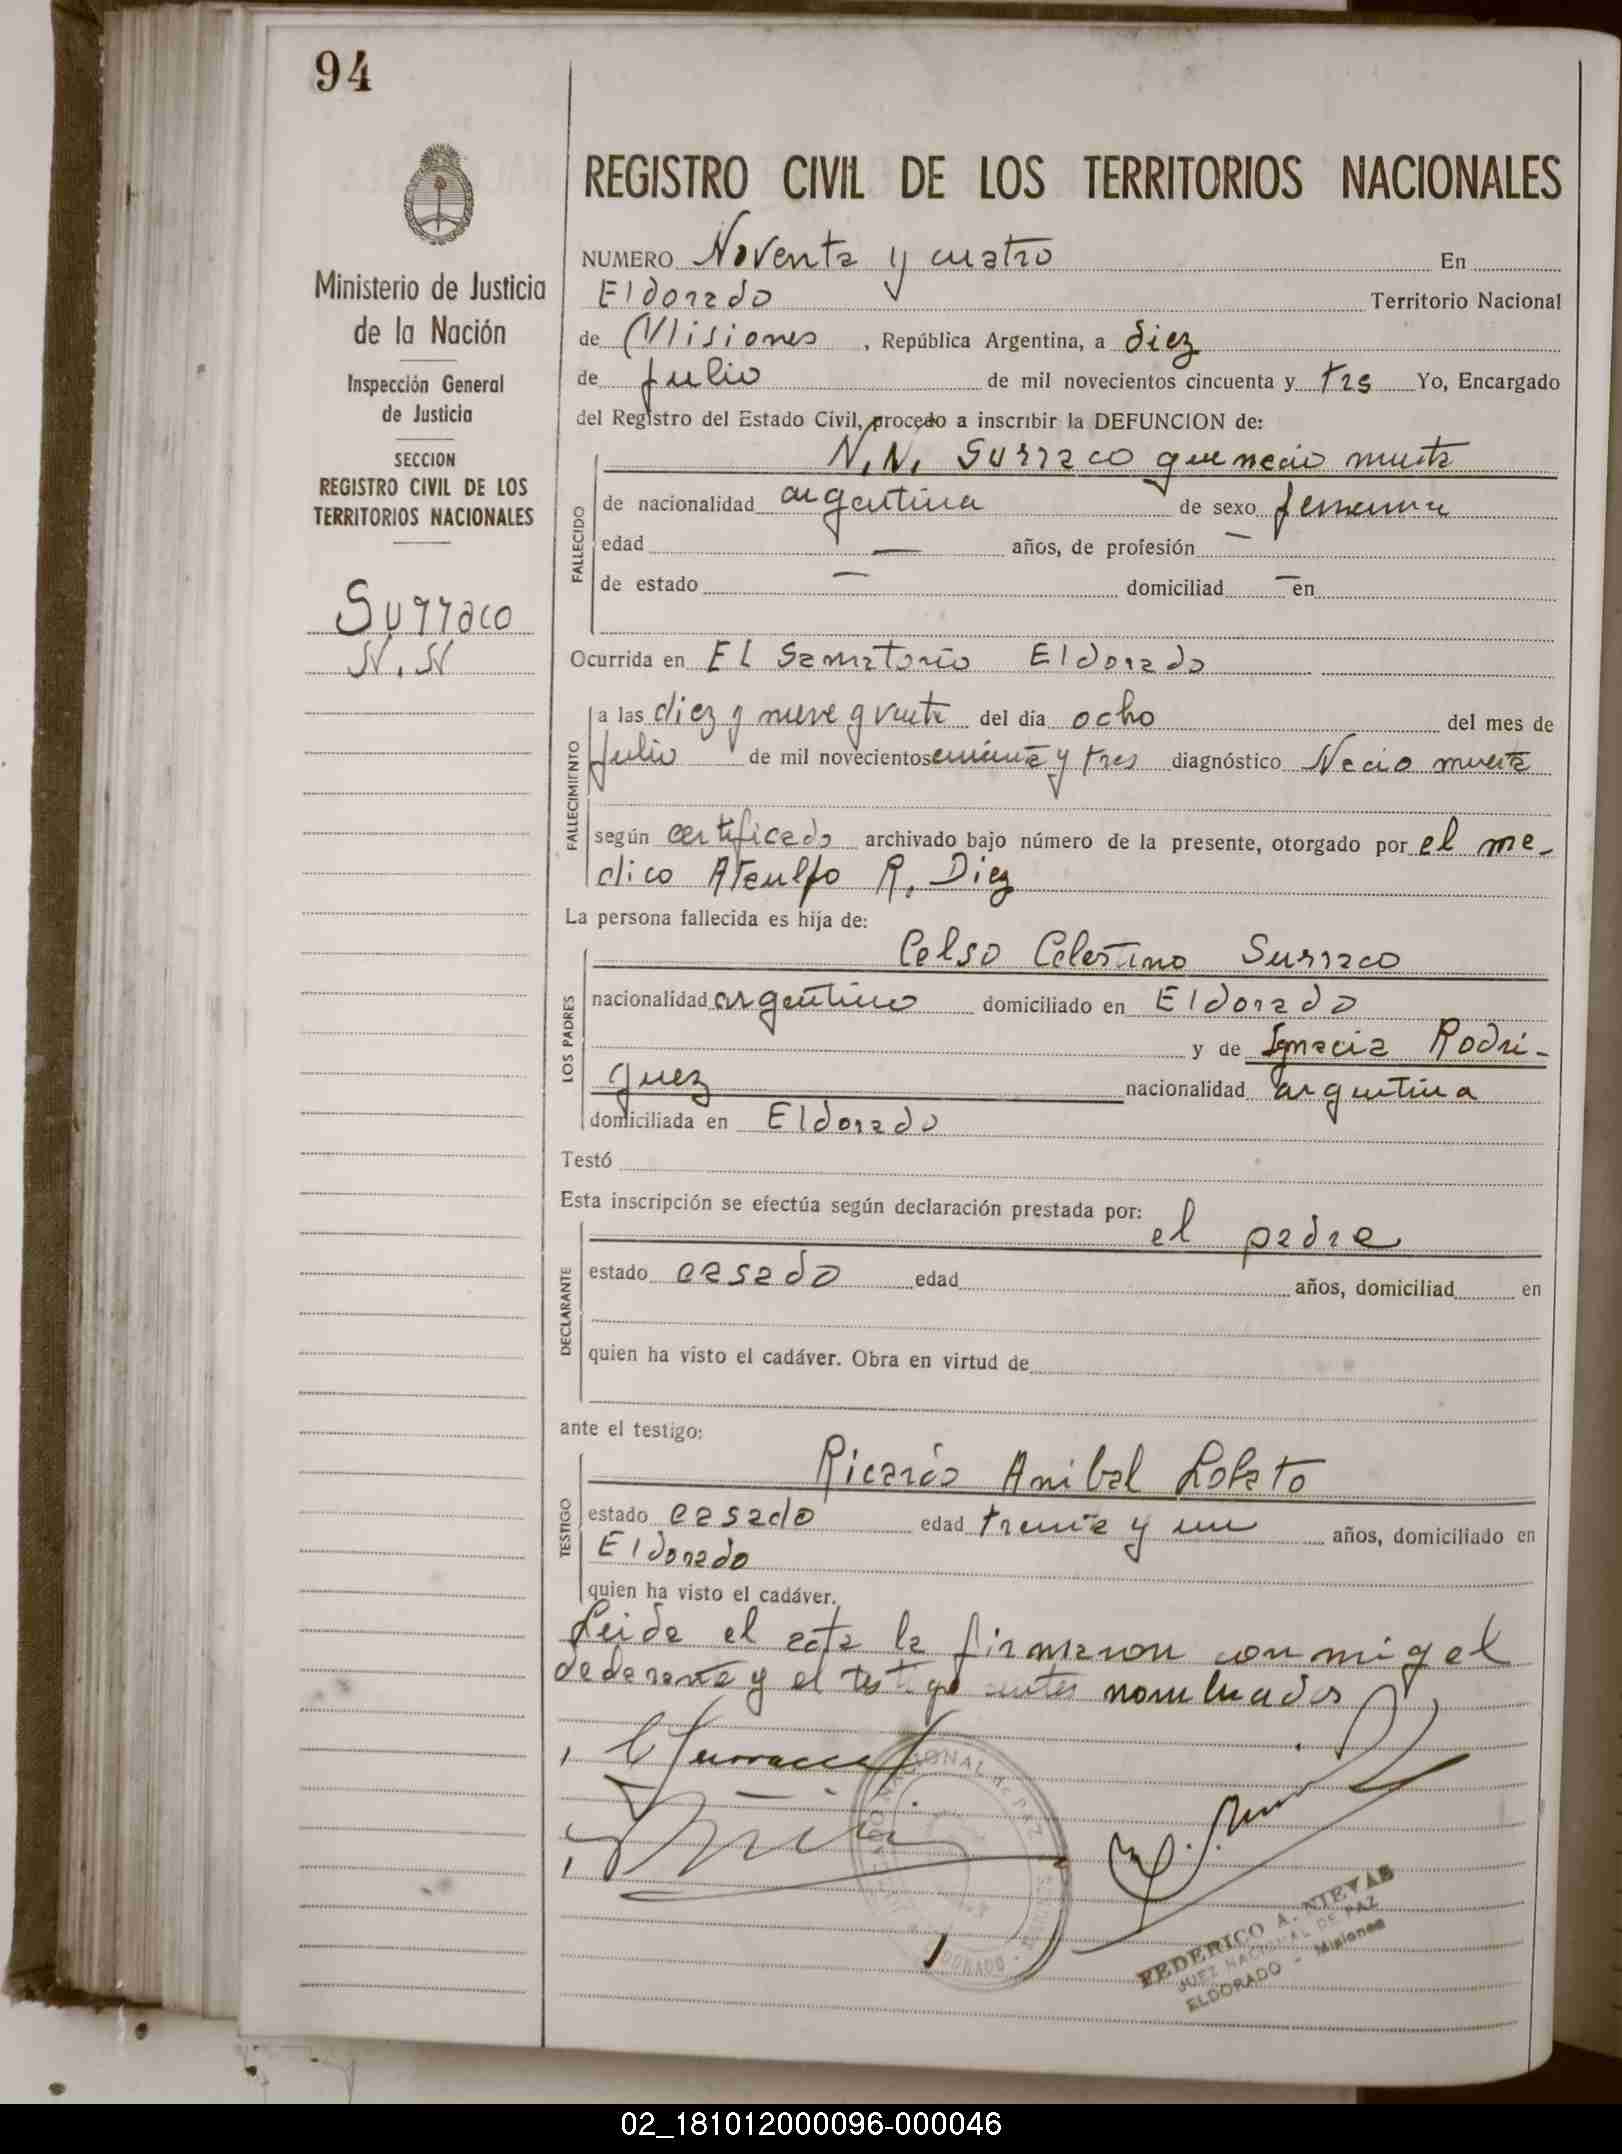 94
Ministerio de Justicia
de la Nación
Inspección General
de Justicia
SECCION
REGISTRO CIVIL DE LOS
TERRITORIOS NACIONALES
Surraco
N. N
REGISTRO CIVIL DE LOS TERRITORIOS NACIONALES
NUMERO Noventa y cuatro En
Eldorado Territorio Nacional
de Misiones , República Argentina, a diez
de Julio de mil novecientos cincuenta y tres Yo, Encargado
del Registro del Estado Civil, procedo a inscribir la DEFUNCION de:
N. N. Surraco que nacio muerta
FALLECIDO
de nacionalidad argentina de sexo femenino
edad — años, de profesión —
de estado — domiciliad — en
Ocurrida en El Sanatorio Eldorado
FALLECIMIENTO
a las diez y nueve y veinte del día ocho del mes de
Julio de mil novecientos cincuenta y tres diagnóstico Nacio muerta
según certificado archivado bajo número de la presente, otorgado por el me-
dico Ataulfo R. Diez
La persona fallecida es hija de:
Celso Celestino Surraco
LOS PADRES
nacionalidad argentino domiciliado en Eldorado
y de Ignacia Rodri-
guez nacionalidad argentina
domiciliada en Eldorado
Testó
Esta inscripción se efectúa según declaración prestada por:
el padre
DECLARANTE
estado casado edad años, domiciliad en
quien ha visto el cadáver. Obra en virtud de
ante el testigo:
Ricardo Anibal Lobato
TESTIGO
estado casado edad treinta y un años, domiciliado en
Eldorado
quien ha visto el cadáver.
Leida el acta la firmaron conmigo el
declarante y el testigo antes nombrados
C Surraco
FEDERICO A. NIEVAS
JUEZ NACIONAL DE PAZ
ELDORADO - Misiones
02_181012000096-000046